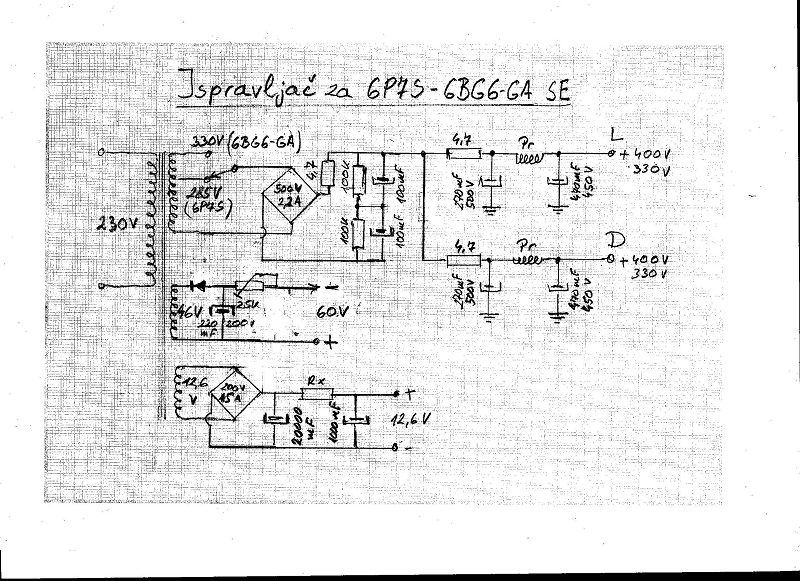 Ispravljač za 6P7S-6BG6-GA SE
330V (6BG6-GA)
285V
(6P7S)
230V
500V
22A
4,7
100K
100K
100mF
100mF
4,7
Pr
L
+400V
330V
270mF
500V
470mF
450V
4,7
Pr
D
+400V
330V
270mF
500V
470mF
450V
46V
220
mF
200V
25K
-
60V
+
12,6
V
200V
15A
Rx
20000
mF
1000mF
+
12,6V
-